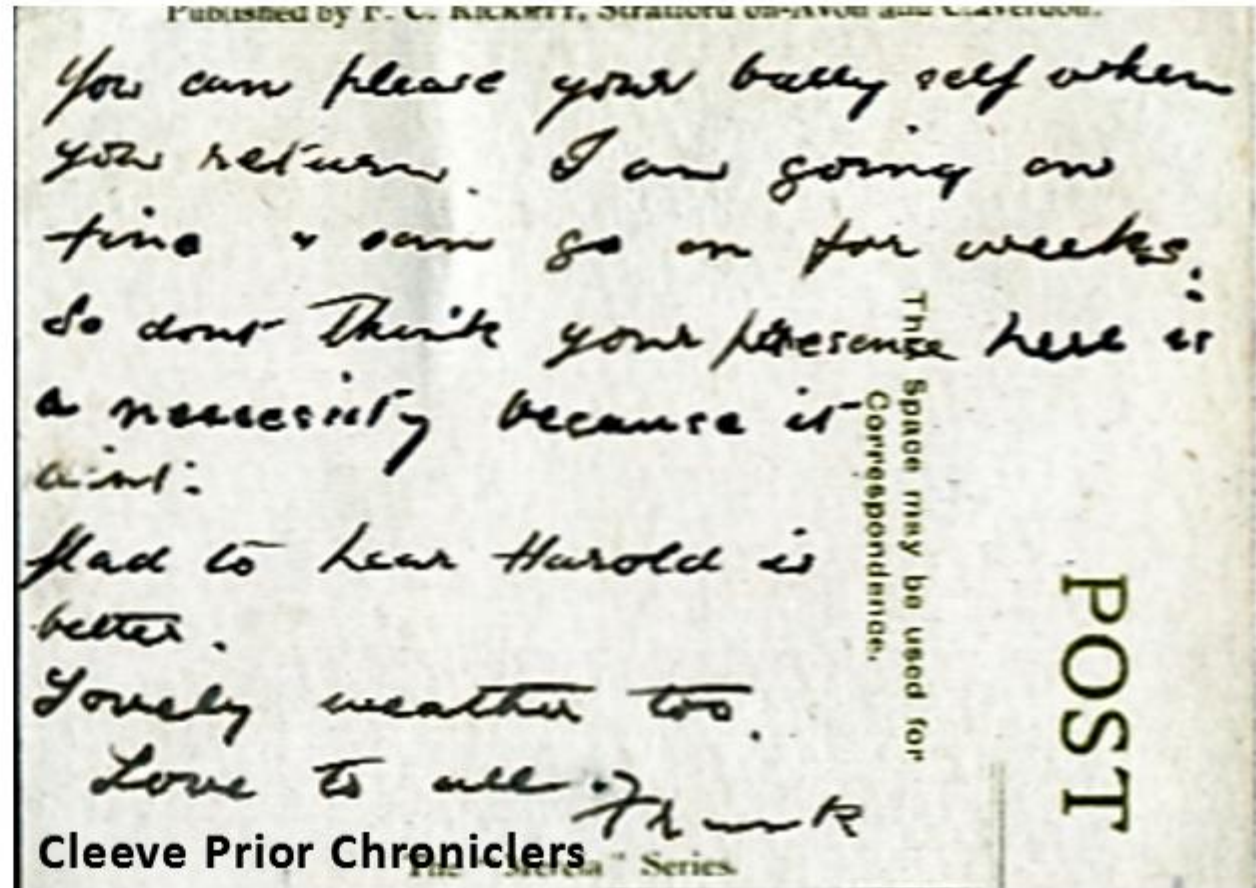 Published by F. C. RICKETT, Stratford on-Avon and Claverdon.
You can please your bally self when
you return. I am going on
fine & can go on for weeks.
So dont think your presence here is
a necessity because it
aint:
Glad to hear Harold is
better.
Lovely weather too.
Love to all.
This Space may be used for
Correspondence.
POST
Cleeve Prior Chroniclers
The "Mercia" Series.